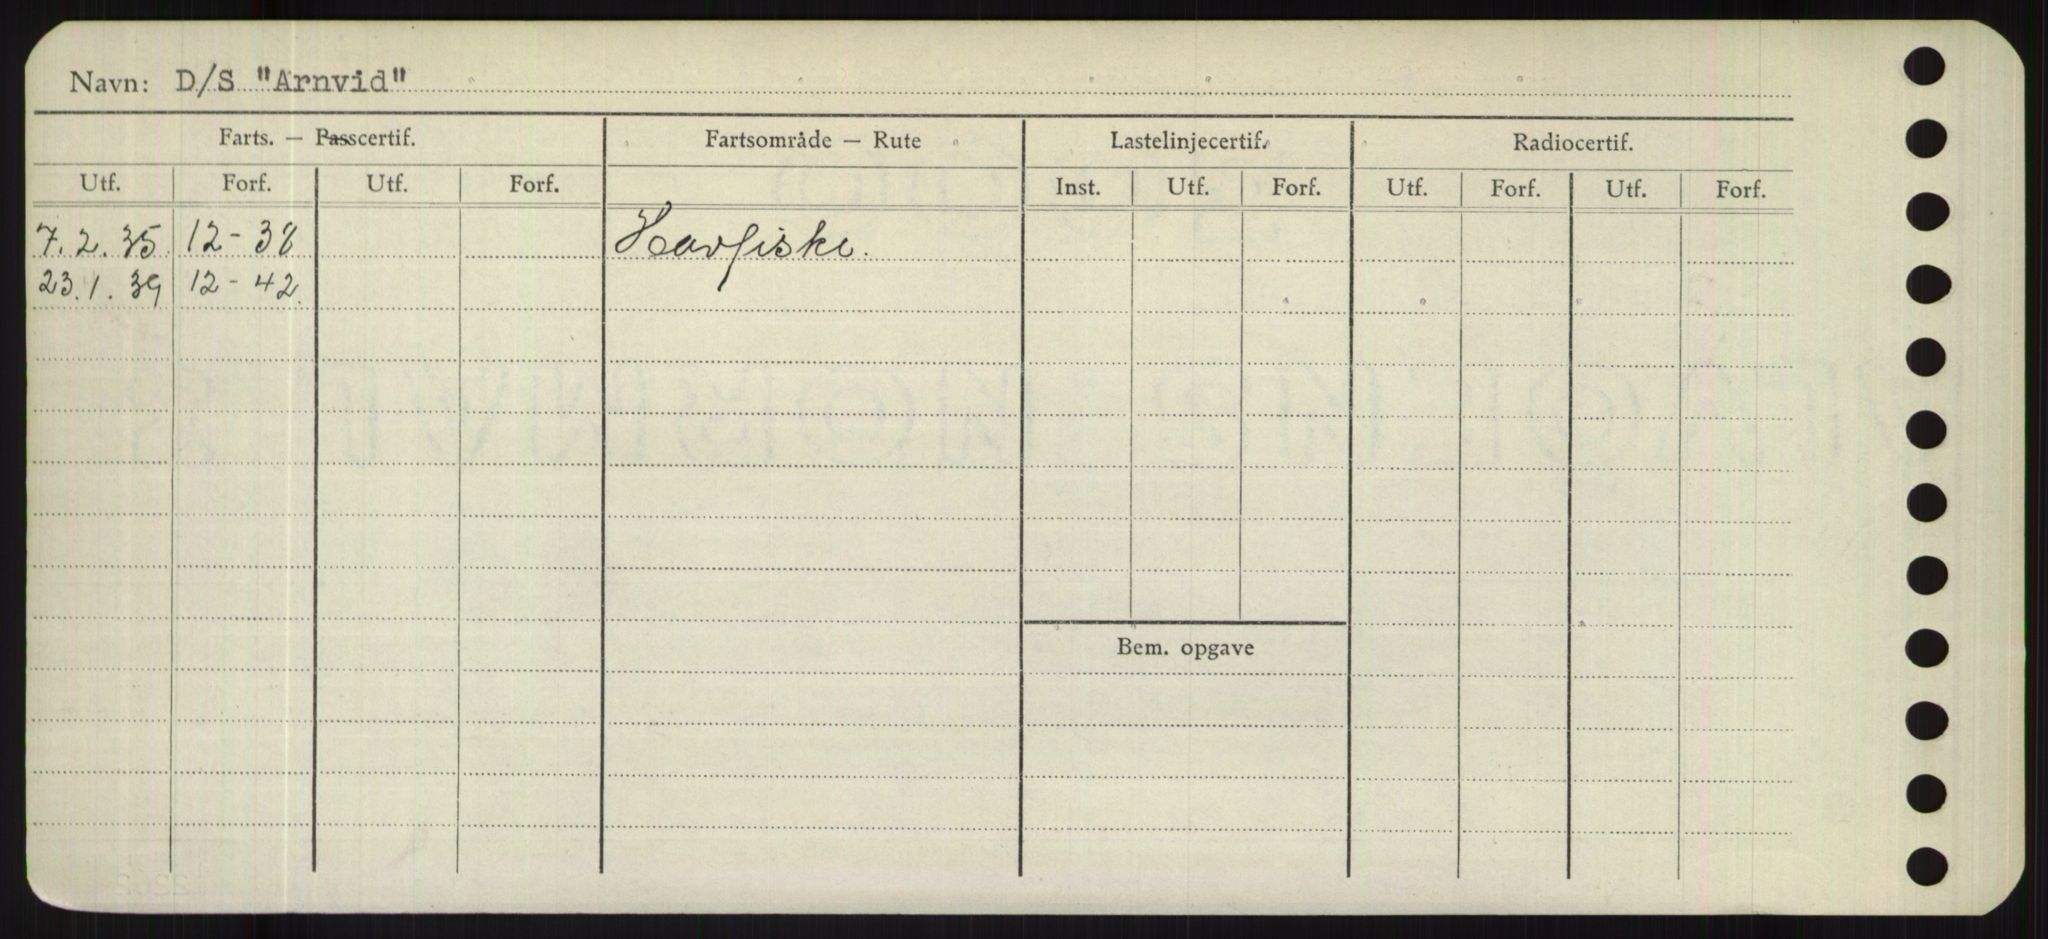 Navn: D/S "Arnvid"
Farts. — Passcertif. Fartsområde — Rute Lastelinjecertif. Radiocertif.
Utf. Forf. Utf. Forf. Inst. Utf. Forf. Utf. Forf. Utf. Forf.
7.2.35. 12-38 Havfiske.
23.1.39 12-42.
Bem. opgave